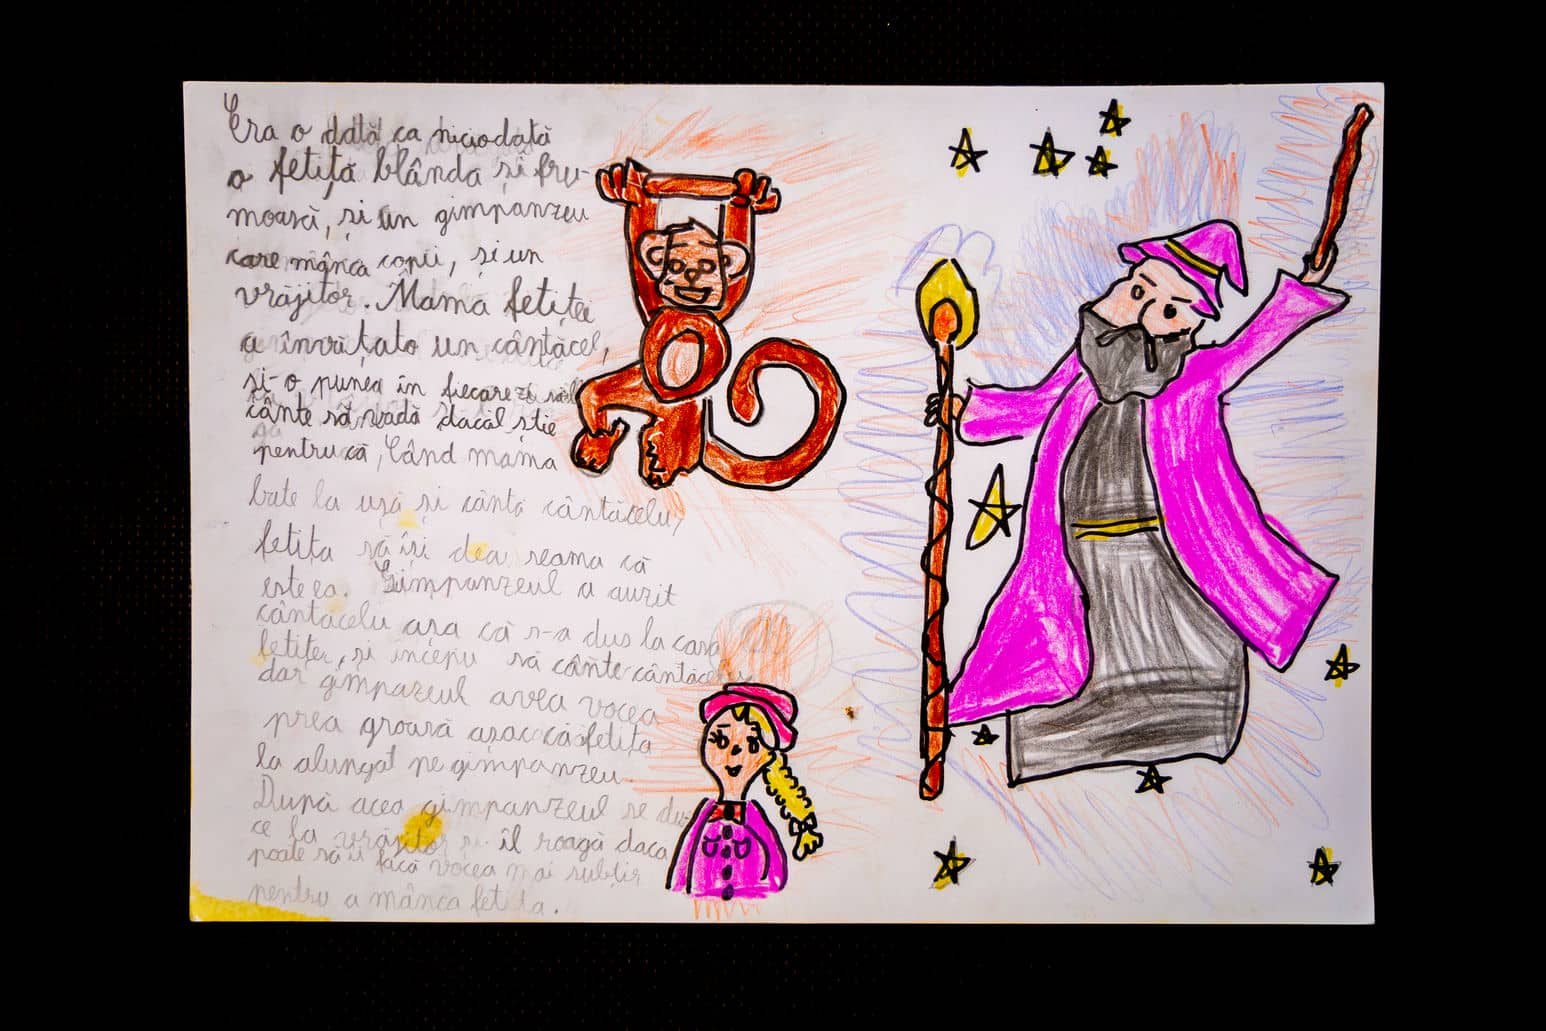 Era o dată ca niciodată
o fetiță blânda și fru-
moasă, și un gimpanzeu
care mânca copii, și un
vrăjitor. Mama fetiței
a învățato un cântăcel,
și-o punea în fiecare zi să
cânte să vadă dacăl știe
pentru că, Când mama
bate la ușă și cântă cântăcelu,
fetița să își dea seama că
este ea. Gimpanzeul a auzit
cântăcelu așa că s-a dus la casa
fetiței, și începu să cânte cântăcelu,
dar gimpazeul avea vocea
prea groasă așac că fetița
la alungat pe gimpanzeu.
După acea gimpanzeul se du-
ce la vrăjitor și îl roagă daca
poate să îi facă vocea mai subțire
pentru a mânca fetița.